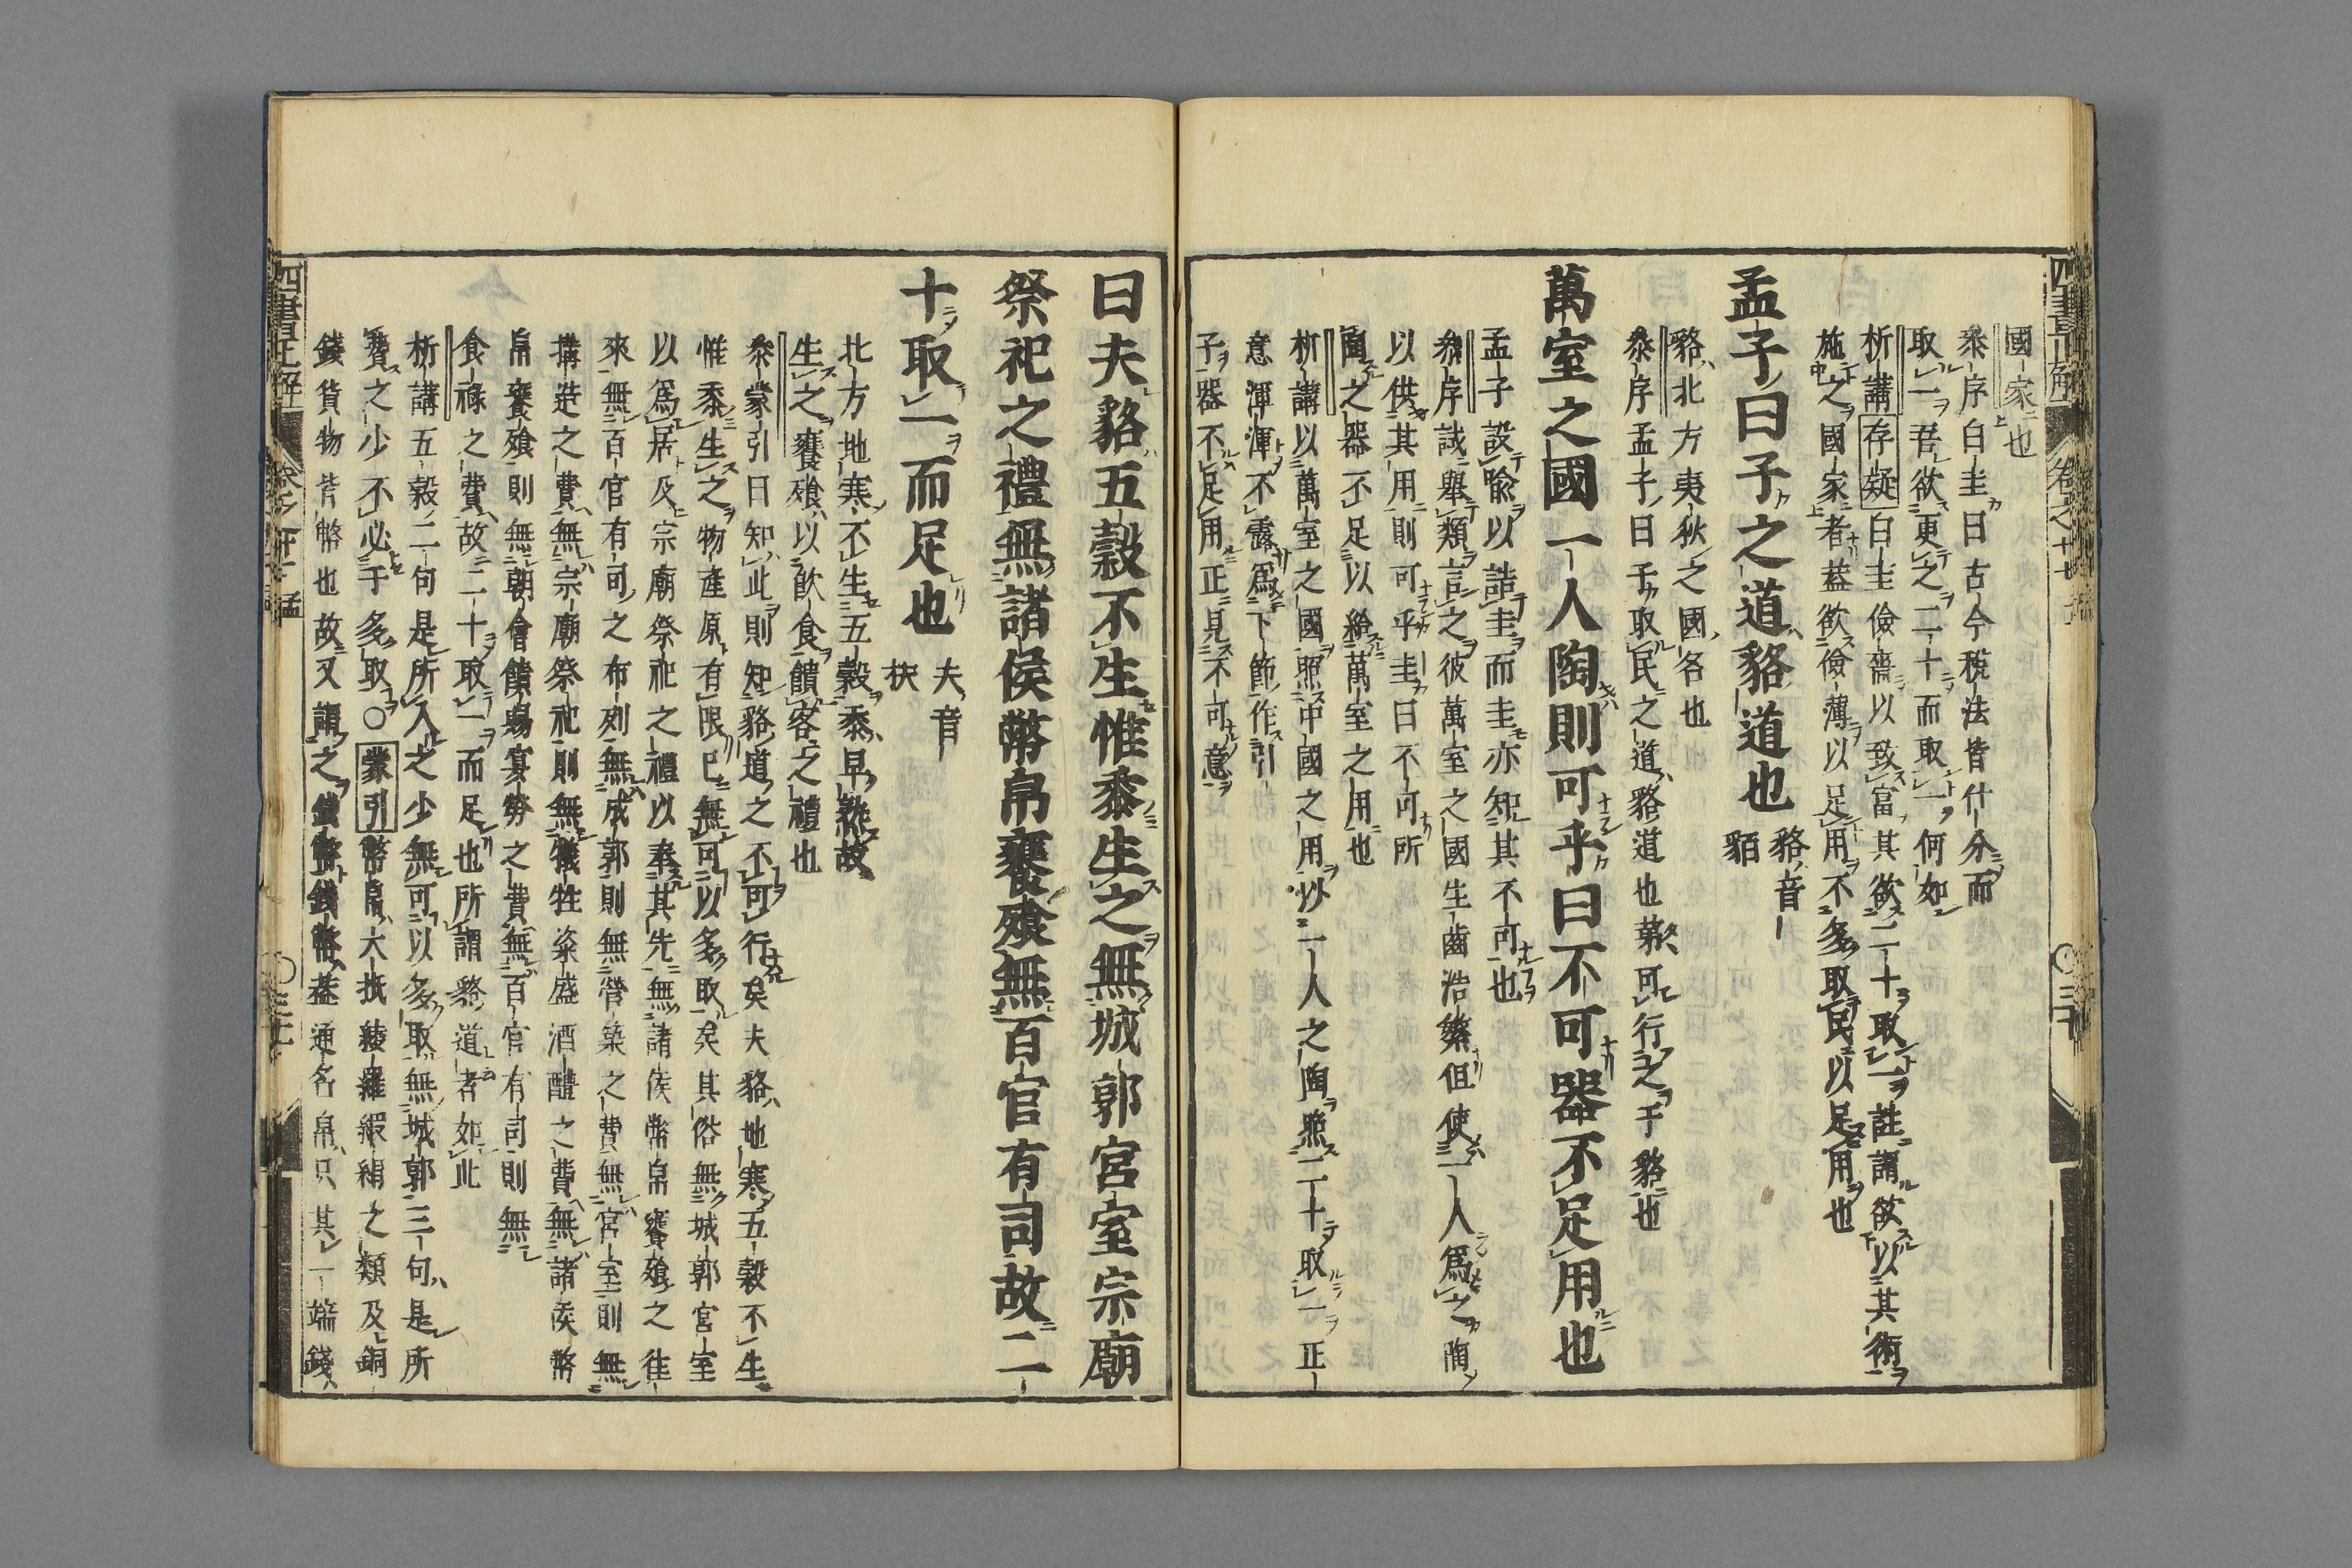 國家也
泰序白圭曰古今稅法皆什分而
取一吾欲更之二十而取一何如
析講存疑白圭儉嗇以致富其欲二十取一註謂欲以其術
施之國家者蓋欲儉薄以足用不多取民以足用也
孟子曰子之道貉道也
貉音
貊
貉北方夷狄之國名也
泰序孟子曰子取民之道貉道也第可行之于貉也
萬室之國一人陶則可乎曰不可器不足用也
孟子設喻以詰圭而圭亦知其不可也
序試舉類言之彼萬室之國生齒浩繁但使一人爲之陶
以供其用則可乎圭曰不可所
陶之器不足以給萬室之用也
析講以萬室之國照中國之用以一人之陶照二十取一正
意渾渾不露爲下節作引
子器不足用正見不可意
曰夫貉五穀不生惟黍生之無城郭宮室宗廟
祭祀之禮無諸侯幣帛饔飧無百官有司故二
十取一而足也
夫音
扶
北方地寒不生五穀黍早熟故
生之饔飧以飲食饋客之禮也
泰蒙引曰知此則知貉道之不可行矣夫貉地寒五穀不生
惟黍生之物產原有限已無可以多取矣其俗無城郭宮室
以爲居及宗廟祭祀之禮以奉其先無諸侯幣帛饔飧之往
來無百官有司之布列無成郭則無營築之費無宮室則無
搆造之費無宗廟祭祀則無犧牲粢盛酒醴之費無諸侯幣
帛饔飧則無朝會饋賜宴勞之費無百官有司則無
食祿之費故二十取一而足也所謂貉道者如此
析講五穀二句是所入之少無可以多取無城郭三句是所
費之少不必于多取○蒙引幣帛大抵綾羅緞絹之類及銅
錢貨物皆幣也故又謂之錢幣錢幣蓋通名帛只其一端錢
四書